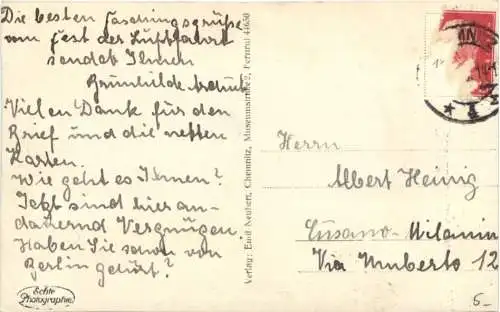 Die besten Faschingsgrüße
vom Fest der Luftfahrt
sendet Ihnen
Vielen Dank für den
Brief und die netten
Karten.
Wie geht es Ihnen?
Jetzt sind hier an-
dauernd Vergnügen.
Haben Sie schon von
Berlin gehört?
Echte
Photographie
Verlag: Emil Neubert, Chemnitz, Museumstraße 2, Fernruf 44650
Herrn
Albert Heinig
Cusano-Milanin
Via Umberto 12
5-